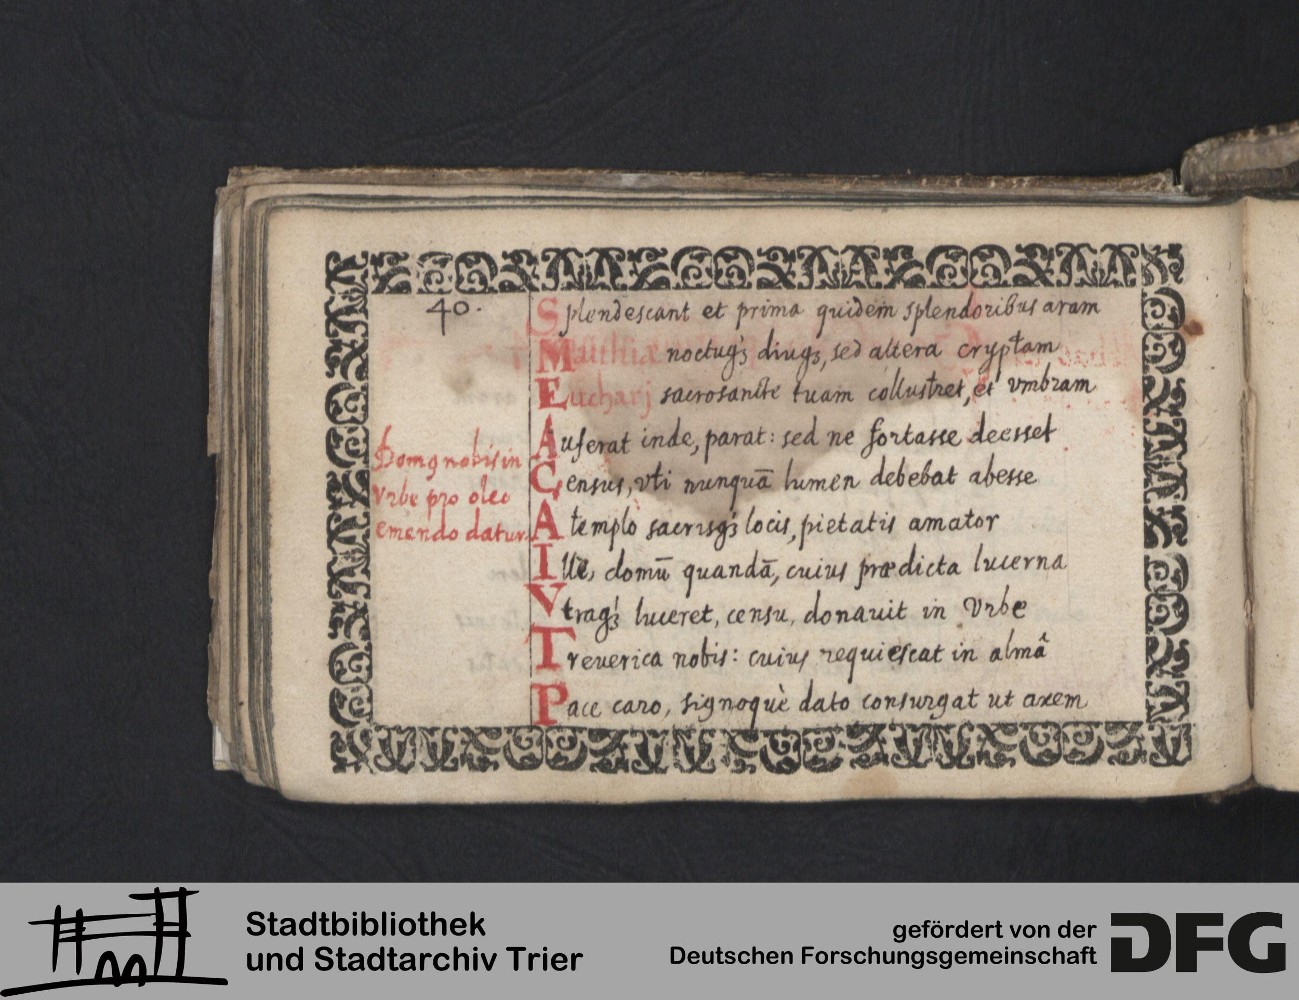 40.
Splendescant et prima quidem splendoribus aram
Matthiæ noctuqꝫ diuqꝫ, sed altera cryptam
Eucharij sacrosancte tuam collustret, et vmbram
Auferat inde, parat: sed ne fortasse deesset
Census, vti nunquā lumen debebat abesse
A templo sacrisqꝫ locis, pietatis amator
Ille, domū quandā, cuius prædicta lucerna
Vtraqꝫ luceret, censu, donauit in Vrbe
Treuerica nobis: cuius requiescat in almâ
Pace caro, signoquè dato consurgat ut axem
Domꝰ nobis in
Vrbe pro oleo
emendo datur.
Stadtbibliothek
und Stadtarchiv Trier
gefördert von der
Deutschen Forschungsgemeinschaft
DFG